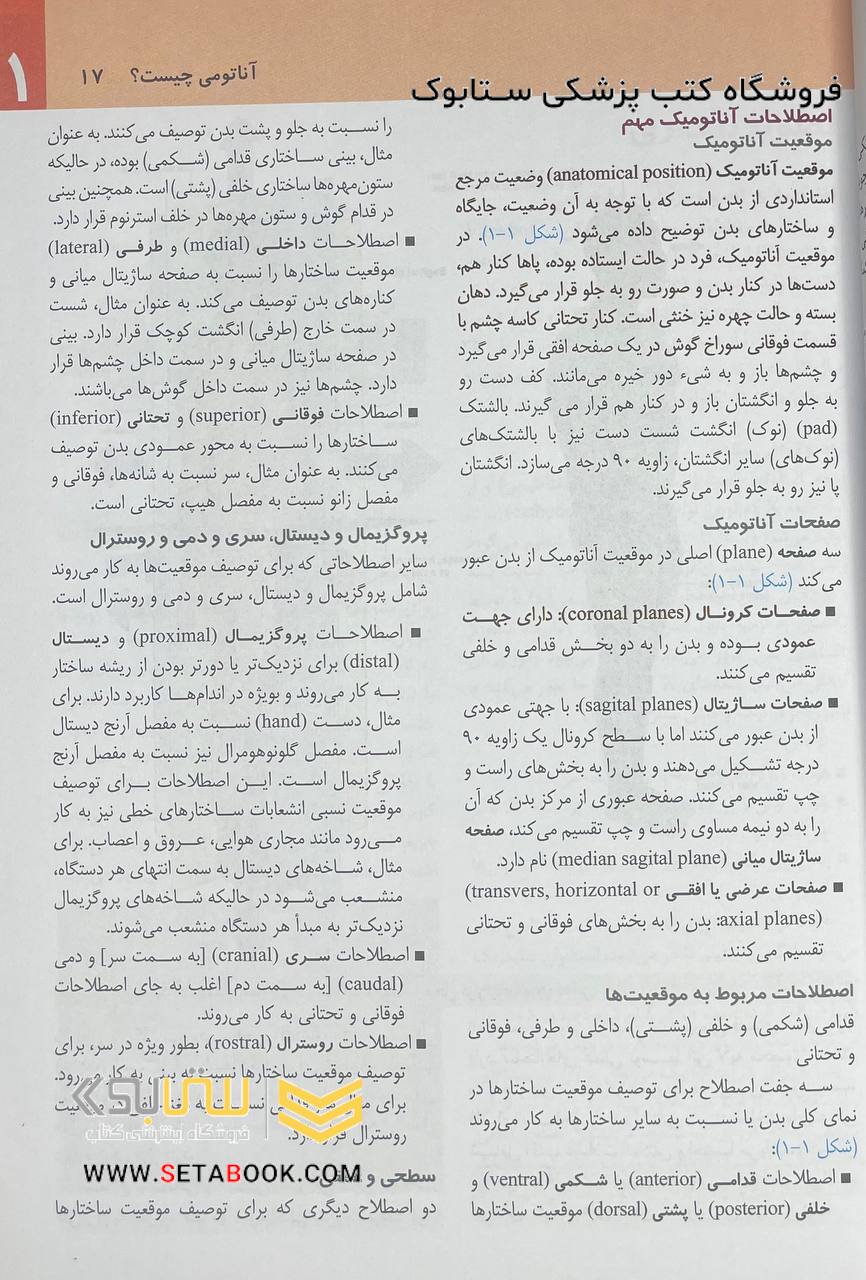 ۱
۱۷ آناتومی چیست؟
فروشگاه کتب پزشکی ستابوک
اصطلاحات آناتومیک مهم
موقعیت آناتومیک
موقعیت آناتومیک (anatomical position) وضعیت مرجع
استانداردی از بدن است که با توجه به آن وضعیت، جایگاه
و ساختارهای بدن توضیح داده می‌شود (شکل ۱-۱). در
موقعیت آناتومیک، فرد در حالت ایستاده بوده، پاها کنار هم،
دست‌ها در کنار بدن و صورت رو به جلو قرار می‌گیرد. دهان
بسته و حالت چهره نیز خنثی است. کنار تحتانی کاسه چشم با
قسمت فوقانی سوراخ گوش در یک صفحه افقی قرار می‌گیرد
و چشم‌ها باز و به شیء دور خیره می‌مانند. کف دست رو
به جلو و انگشتان باز و در کنار هم قرار می گیرند. بالشتک
(pad) (نوک) انگشت شست دست نیز با بالشتک‌های
(نوک‌های) سایر انگشتان، زاویه ۹۰ درجه می‌سازد. انگشتان
پا نیز رو به جلو قرار می‌گیرند.
صفحات آناتومیک
سه صفحه (plane) اصلی در موقعیت آناتومیک از بدن عبور
می‌کند (شکل ۱-۱):
■ صفحات کرونال (coronal planes): دارای جهت
عمودی بوده و بدن را به دو بخش قدامی و خلفی
تقسیم می‌کنند.
■ صفحات ساژیتال (sagital planes): با جهتی عمودی
از بدن عبور می‌کنند اما با سطح کرونال یک زاویه ۹۰
درجه تشکیل می‌دهند و بدن را به بخش‌های راست و
چپ تقسیم می‌کنند. صفحه عبوری از مرکز بدن که آن
را به دو نیمه مساوی راست و چپ تقسیم می‌کند، صفحه
ساژیتال میانی (median sagital plane) نام دارد.
■ صفحات عرضی یا افقی (transvers, horizontal or
axial planes): بدن را به بخش‌های فوقانی و تحتانی
تقسیم می‌کنند.
اصطلاحات مربوط به موقعیت‌ها
قدامی (شکمی) و خلفی (پشتی)، داخلی و طرفی، فوقانی
و تحتانی
سه جفت اصطلاح برای توصیف موقعیت ساختارها در
نمای کلی بدن یا نسبت به سایر ساختارها به کار می‌روند
(شکل ۱-۱):
■ اصطلاحات قدامی (anterior) یا شکمی (ventral) و
خلفی (posterior) یا پشتی (dorsal) موقعیت ساختارها
را نسبت به جلو و پشت بدن توصیف می‌کنند. به عنوان
مثال، بینی ساختاری قدامی (شکمی) بوده، در حالیکه
ستون‌مهره‌ها ساختاری خلفی (پشتی) است. همچنین بینی
در قدام گوش و ستون مهره‌ها در خلف استرنوم قرار دارد.
■ اصطلاحات داخلی (medial) و طرفی (lateral)
موقعیت ساختارها را نسبت به صفحه ساژیتال میانی و
کناره‌های بدن توصیف می‌کند. به عنوان مثال، شست
در سمت خارج (طرفی) انگشت کوچک قرار دارد. بینی
در صفحه ساژیتال میانی و در سمت داخل چشم‌ها قرار
دارد. چشم‌ها نیز در سمت داخل گوش‌ها می‌باشند.
■ اصطلاحات فوقانی (superior) و تحتانی (inferior)
ساختارها را نسبت به محور عمودی بدن توصیف
می‌کنند. به عنوان مثال، سر نسبت به شانه‌ها، فوقانی و
مفصل زانو نسبت به مفصل هیپ، تحتانی است.
پروگزیمال و دیستال، سری و دمی و روسترال
سایر اصطلاحاتی که برای توصیف موقعیت‌ها به کار می‌روند
شامل پروگزیمال و دیستال، سری و دمی و روسترال است.
■ اصطلاحات پروگزیمال (proximal) و دیستال
(distal) برای نزدیک‌تر یا دورتر بودن از ریشه ساختار
به کار می‌روند و بویژه در اندام‌ها کاربرد دارند. برای
مثال، دست (hand) نسبت به مفصل آرنج دیستال
است. مفصل گلونوهومرال نیز نسبت به مفصل آرنج
پروگزیمال است. این اصطلاحات برای توصیف
موقعیت نسبی انشعابات ساختارهای خطی نیز به کار
می‌رود مانند مجاری هوایی، عروق و اعصاب. برای
مثال، شاخه‌های دیستال به سمت انتهای هر دستگاه،
منشعب می‌شود در حالیکه شاخه‌های پروگزیمال
نزدیک‌تر به مبدأ هر دستگاه منشعب می‌شوند.
■ اصطلاحات سری (cranial) [به سمت سر] و دمی
(caudal) [به سمت دم] اغلب به جای اصطلاحات
فوقانی و تحتانی به کار می‌روند.
■ اصطلاحات روسترال (rostral)، بطور ویژه در سر، برای
توصیف موقعیت ساختارها نسبت به بینی به کار می‌رود.
برای نسبت به موقعیت
روسترال قرار دارد.
ستابوک
فروشگاه اینترنتی کتاب
WWW.SETABOOK.COM
سطحی و
دو اصطلاح دیگری که برای توصیف موقعیت ساختارها